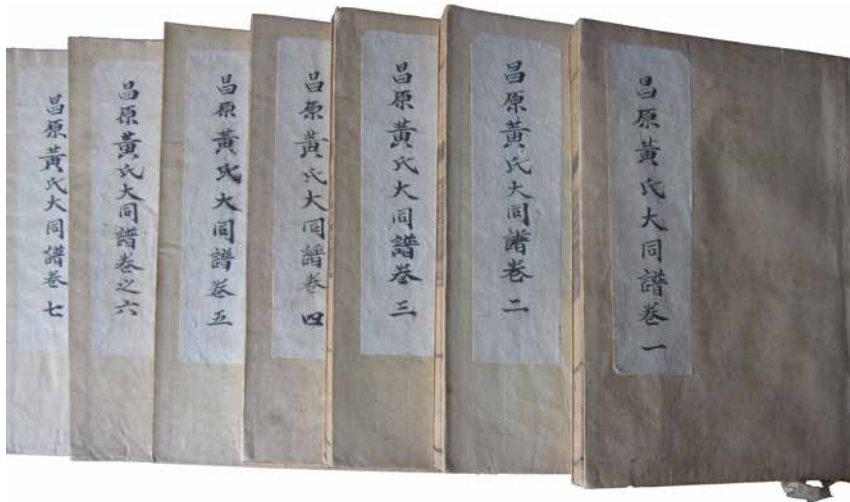 昌原黃氏大同譜卷一
昌原黃氏大同譜卷二
昌原黃氏大同譜卷三
昌原黃氏大同譜卷四
昌原黃氏大同譜卷五
昌原黃氏大同譜卷之六
昌原黃氏大同譜卷七